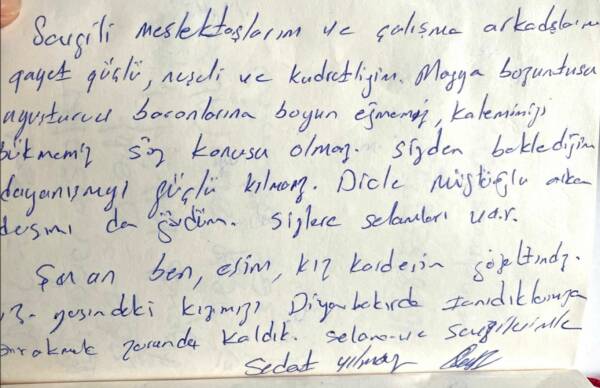 Sevgili meslektaşlarım ve çalışma arkadşlarım
gayet güçlü, neşeli ve kudretliyim. Mafya bozuntusu
uyuşturucu baronlarına boyun eğmemiz, kalemimizi
bükmemiz söz konusu olmaz. Sizden beklediğim
dayanışmayı güçlü kılmanız. Dicle Müftüoğlu arka
daşımı da gördüm. Sizlere selamları var.
Şu an ben, eşim, kız kardeşim gözaltında.
yaşındaki kızımızı Diyarbakırda tanıdıklarımıza
bırakmak zorunda kaldık. selam ve sevgilerimle
Sedat Yılmaz